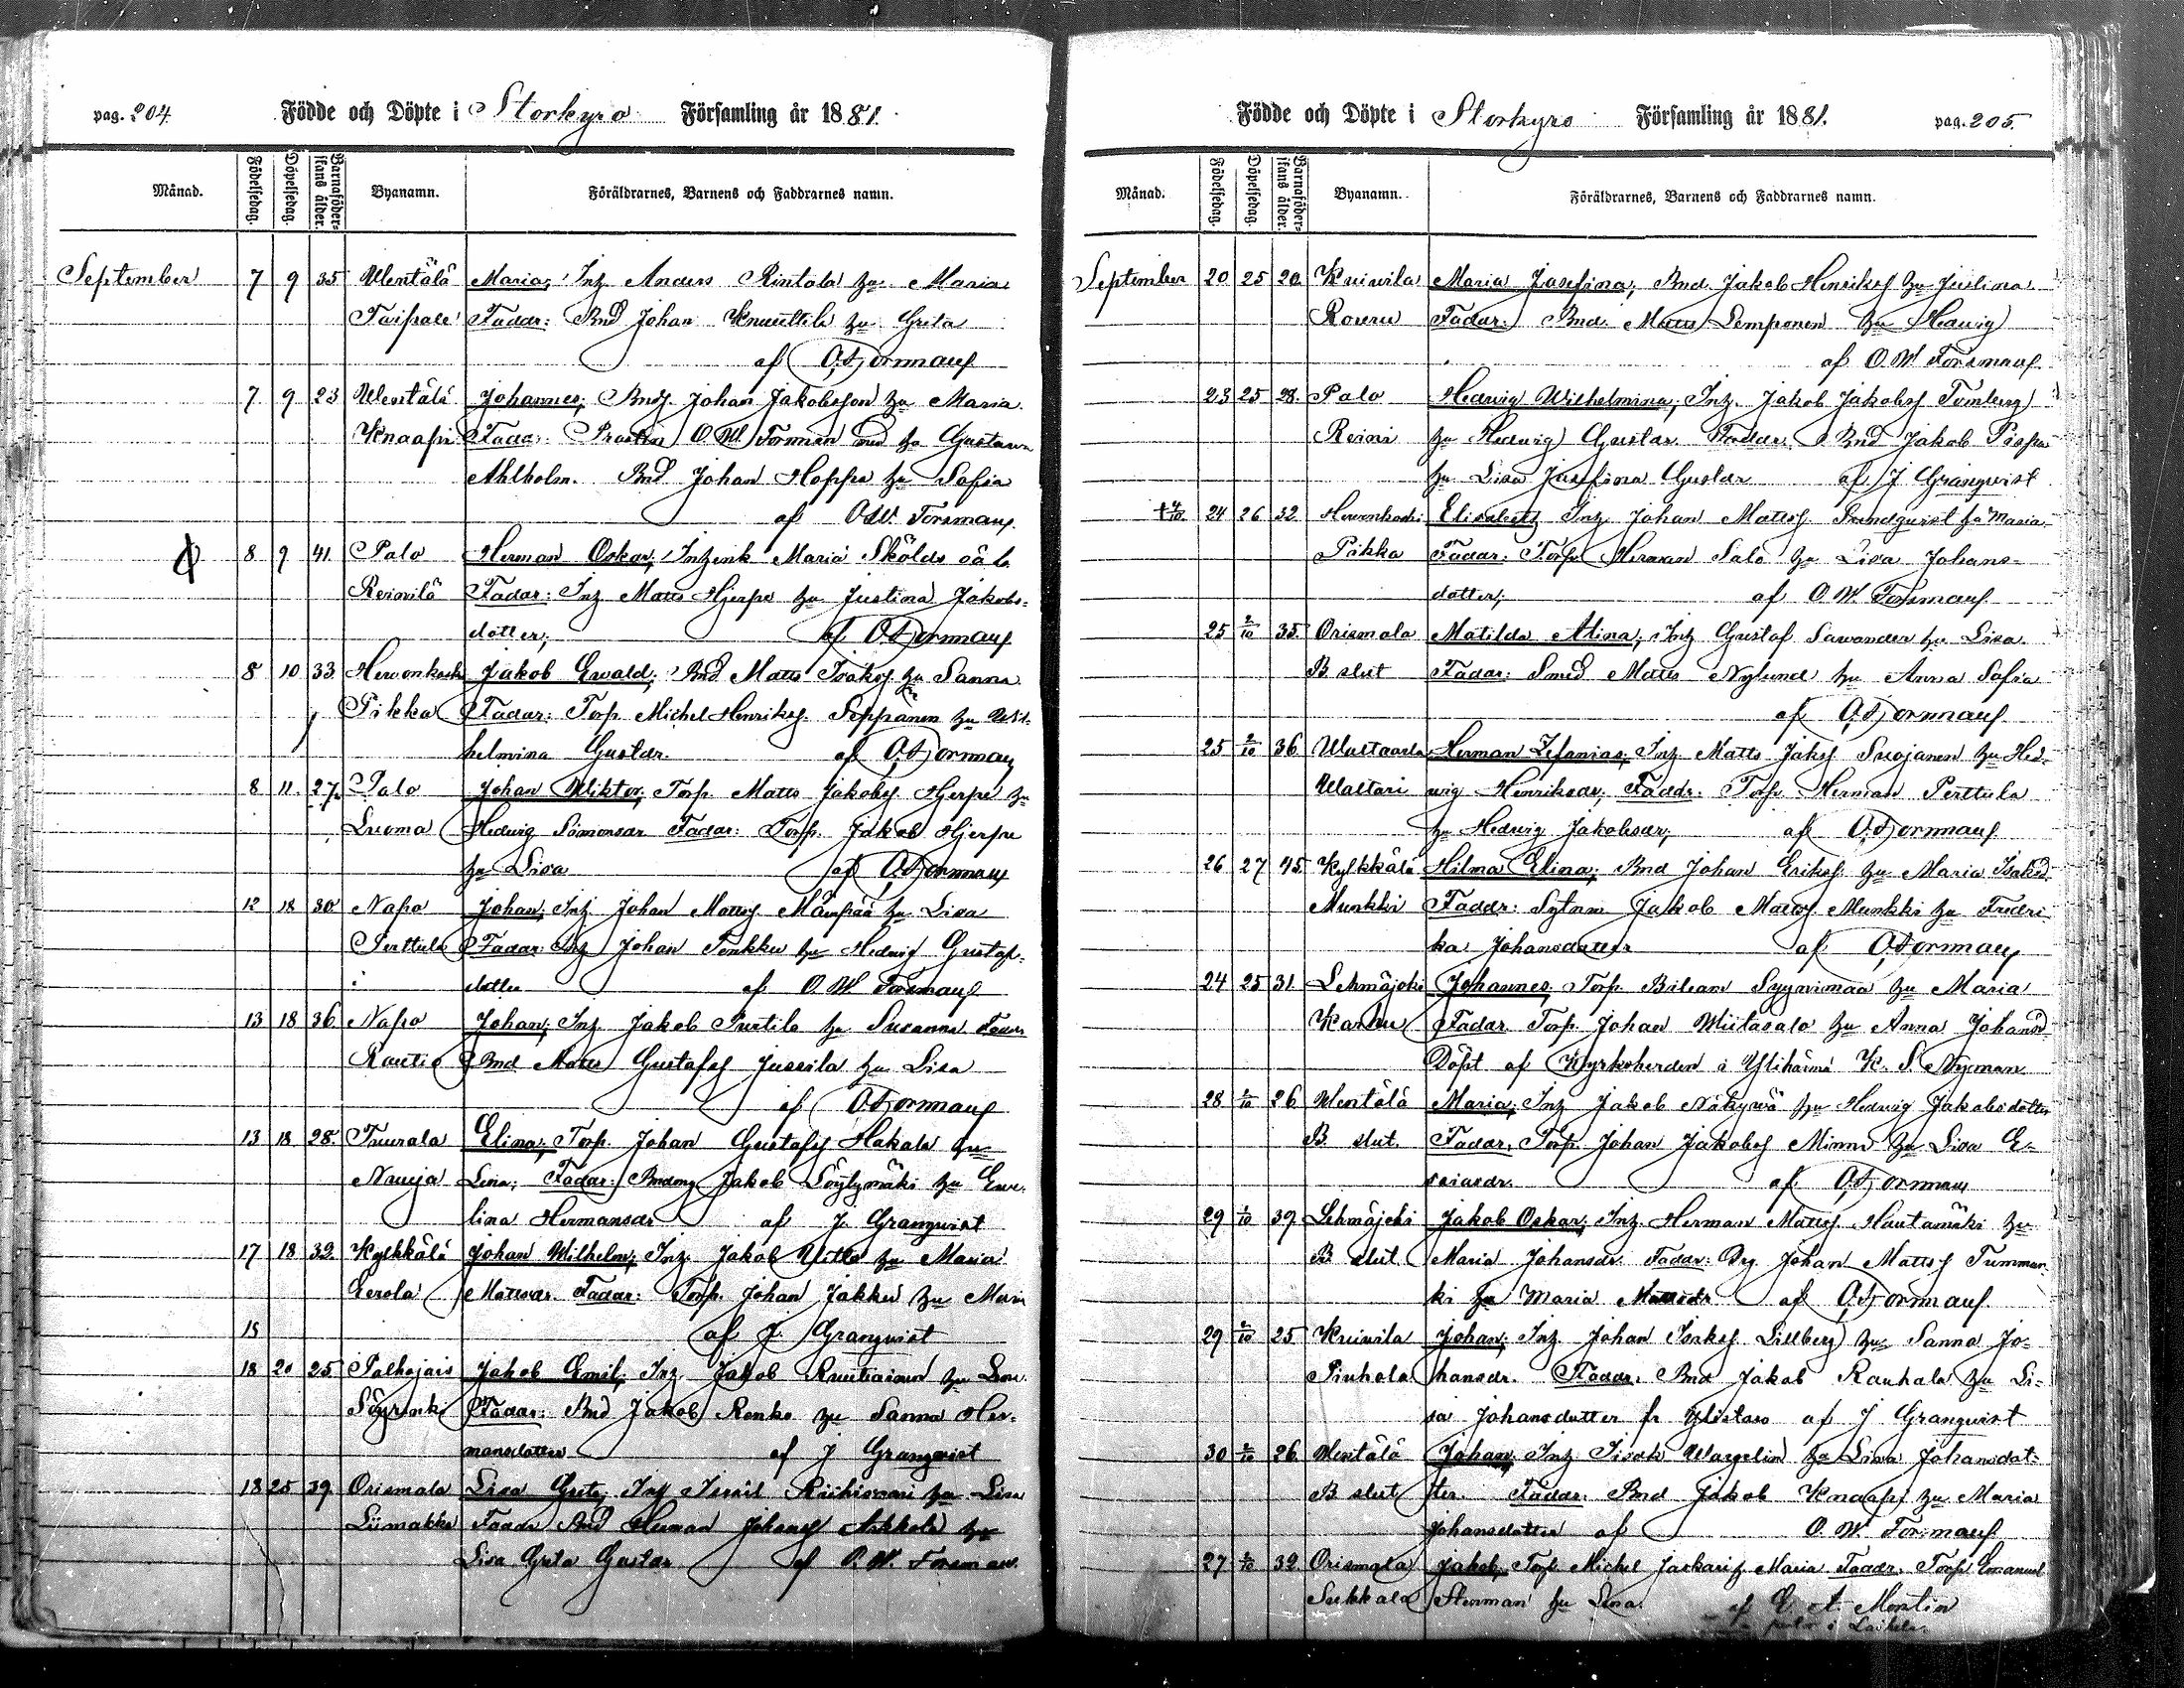 pag. 204 Födde och Döpte i Storkyro Församling år 1881.
Månad. Födelsedag. Döpelsedag. Barnaföderskans ålder. Byanamn. Föräldrarnes, Barnens och Faddrarnes namn.
September 7 9 35 Wentälä Maria; Inh. Anders Rintala hu Maria
Taipale Faddr: Bnd Johan Knuuttila hu Greta
af O.W. Forsman
7 9 23 Wentälä Johannes; Bnds. Johan Jakobsson hu Maria
Knaapi Fadd: Prosten O.W. Forsman med hu Gustava
Ahlholm. Bnd Johan Hoppa hu Sofia
af O.W. Forsman.
8 9 41. Palo Herman Oskar; Inhenk Maria Skölds oä b.
Reinilä Faddr: Inh Matts Hjerpe hu Justina Jakobs-
dotter; af O.W. Forsman
8 10 33. Hevonkoski Jakob Ewald; Bnd Matts Isaks. hu Sanna
Pikka Faddr: Torp. Michel Henriks. Seppänen hu Wil-
helmina Gustdr. af O.W. Forsman
8 11. 27. Palo Johan Wiktor; Torp. Matts Jakobs. Hjerpe hu
Luoma Hedvig Simonsdr Faddr: Torp. Jakob Hjerpe
hu Lisa af O.W. Forsman
12 18 30 Napo Johan; Inh. Johan Matts. Mäenpää hu Lisa
Perttula Faddr: Inh Johan Tonkku hu Hedvig Gustaf-
dotter af O.W. Forsman
13 18 36 Napo Johan; Inh. Jakob Purtila hu Susanna Faddr
Rautio Bnd Matts Gustafs. Jussila hu Lisa
af O.W. Forsman
13 18 28. Tuurala Elina; Torp. Johan Gustafs Hakala hu
Nauija Lisa; Faddr: Jakob Löylymäki hu Eve-
lina Hermansdr af J. Granqvist
17 18 32. Kylkkälä Johan Wilhelm; Inh. Jakob hu Maria
Eerola Mattsdr. Faddr: Torp. Johan Jakku hu Maria
18 af J. Granqvist
18 20 25 Palhojais Jakob Emil; Inh. Jakob hu Lisa
Söyrinki Faddr: Bnd Jakob Renko hu Sanna Her-
mansdotter af J Granqvist
18 25 39. Orismala Lisa Greta; Inh hu Lisa
Liimakka Faddr Bnd Herman Johans. Askkola hu
Lisa Greta Gustdr af O.W. Forsman.
Födde och Döpte i Storkyro Församling år 1881. pag. 205.
Månad. Födelsedag. Döpelsedag. Barnaföderskans ålder. Byanamn. Föräldrarnes, Barnens och Faddrarnes namn.
September 20 25 20 Kuivila Maria Josefina; Bnd. Jakob Henriks hu Justina.
Rouru Faddr: Bnd. Matts Lemponen hu Hedvig
af O.W. Forsman
23 25 28. Palo Hedvig Wilhelmina; Inh. Jakob Jakobs
Reini hu Hedvig Gustdr. Faddr. Bnd Jakob Piispa
hu Lisa Josefina Gustdr af J Granqvist
24 26 32 Hevonkoski Elisabeth Inh Johan Matts. Sundqvist hu Maria.
Pikka Faddr: Torp Herman Salo hu Lisa Johans-
dotter; af O.W. Forsman
25 2/10 35. Orismala Matilda Alina; Inh Gustaf Savander hu Lisa.
B. slut Faddr: Smed Matts Nylund hu Anna Sofia
af O.W. Forsman
25 2/10 36. Herman Zefanias; Inh Matts Jaks. Suojanen hu Hed-
Waltari vig Henriksdr; Faddr: Torp. Herman Perttula
hu Hedvig Jakobsdr; af O.W. Forsman
26 27 45. Kylkkälä Hilma Elina; Bnd Johan Eriks. hu Maria Isaksd.
Munkki Faddr: Sytnm Jakob Matts Munkki hu Fredri-
ka Johansdotter af O.W. Forsman
24 25 31. Lehmäjoki Johannes; Torp. Syynimaa hu Maria
Karhu Faddr Torp. Johan Wiitasalo hu Anna Johansd
Döpt af Kyrkoherden i Ylihärmä K. S. Nyman
28 2/10 26 Wentälä Maria; Inh Jakob Näkyvä hu Hedvig Jakobsdotter
B slut. Faddr. Torp. Johan Jakobs Minni hu Lisa E-
saiasdr. af O.W. Forsman
29 1/10 39. Lehmäjoki Jakob Oskar; Inh. Herman Matts. Hautamäki hu
B slut Maria Johansdr. Faddr: Johan Matts
ki hu Maria Mattsdr af O.W. Forsman
29 2/10 25 Kuivila Johan; Inh Johan Isaks. Lillberg hu Sanna Jo-
Pinhola hansdr. Faddr. Bnd Jakob Rauhala hu Li-
sa Johansdotter fr Ylistaro af J Granqvist
30 2/10 26. Wentälä Johan; Inh Isak Wargelin hu Lisa Johansdot-
B slut ter. Faddr. Bnd Jakob Knaapi hu Maria
Johansdotter af O.W. Forsman
27 2/10 32. Orismala Jakob; Torp. Michel Maria Faddr. Torp Emanuel
Sukkala Stenman hu Lena. af E. A. Montin